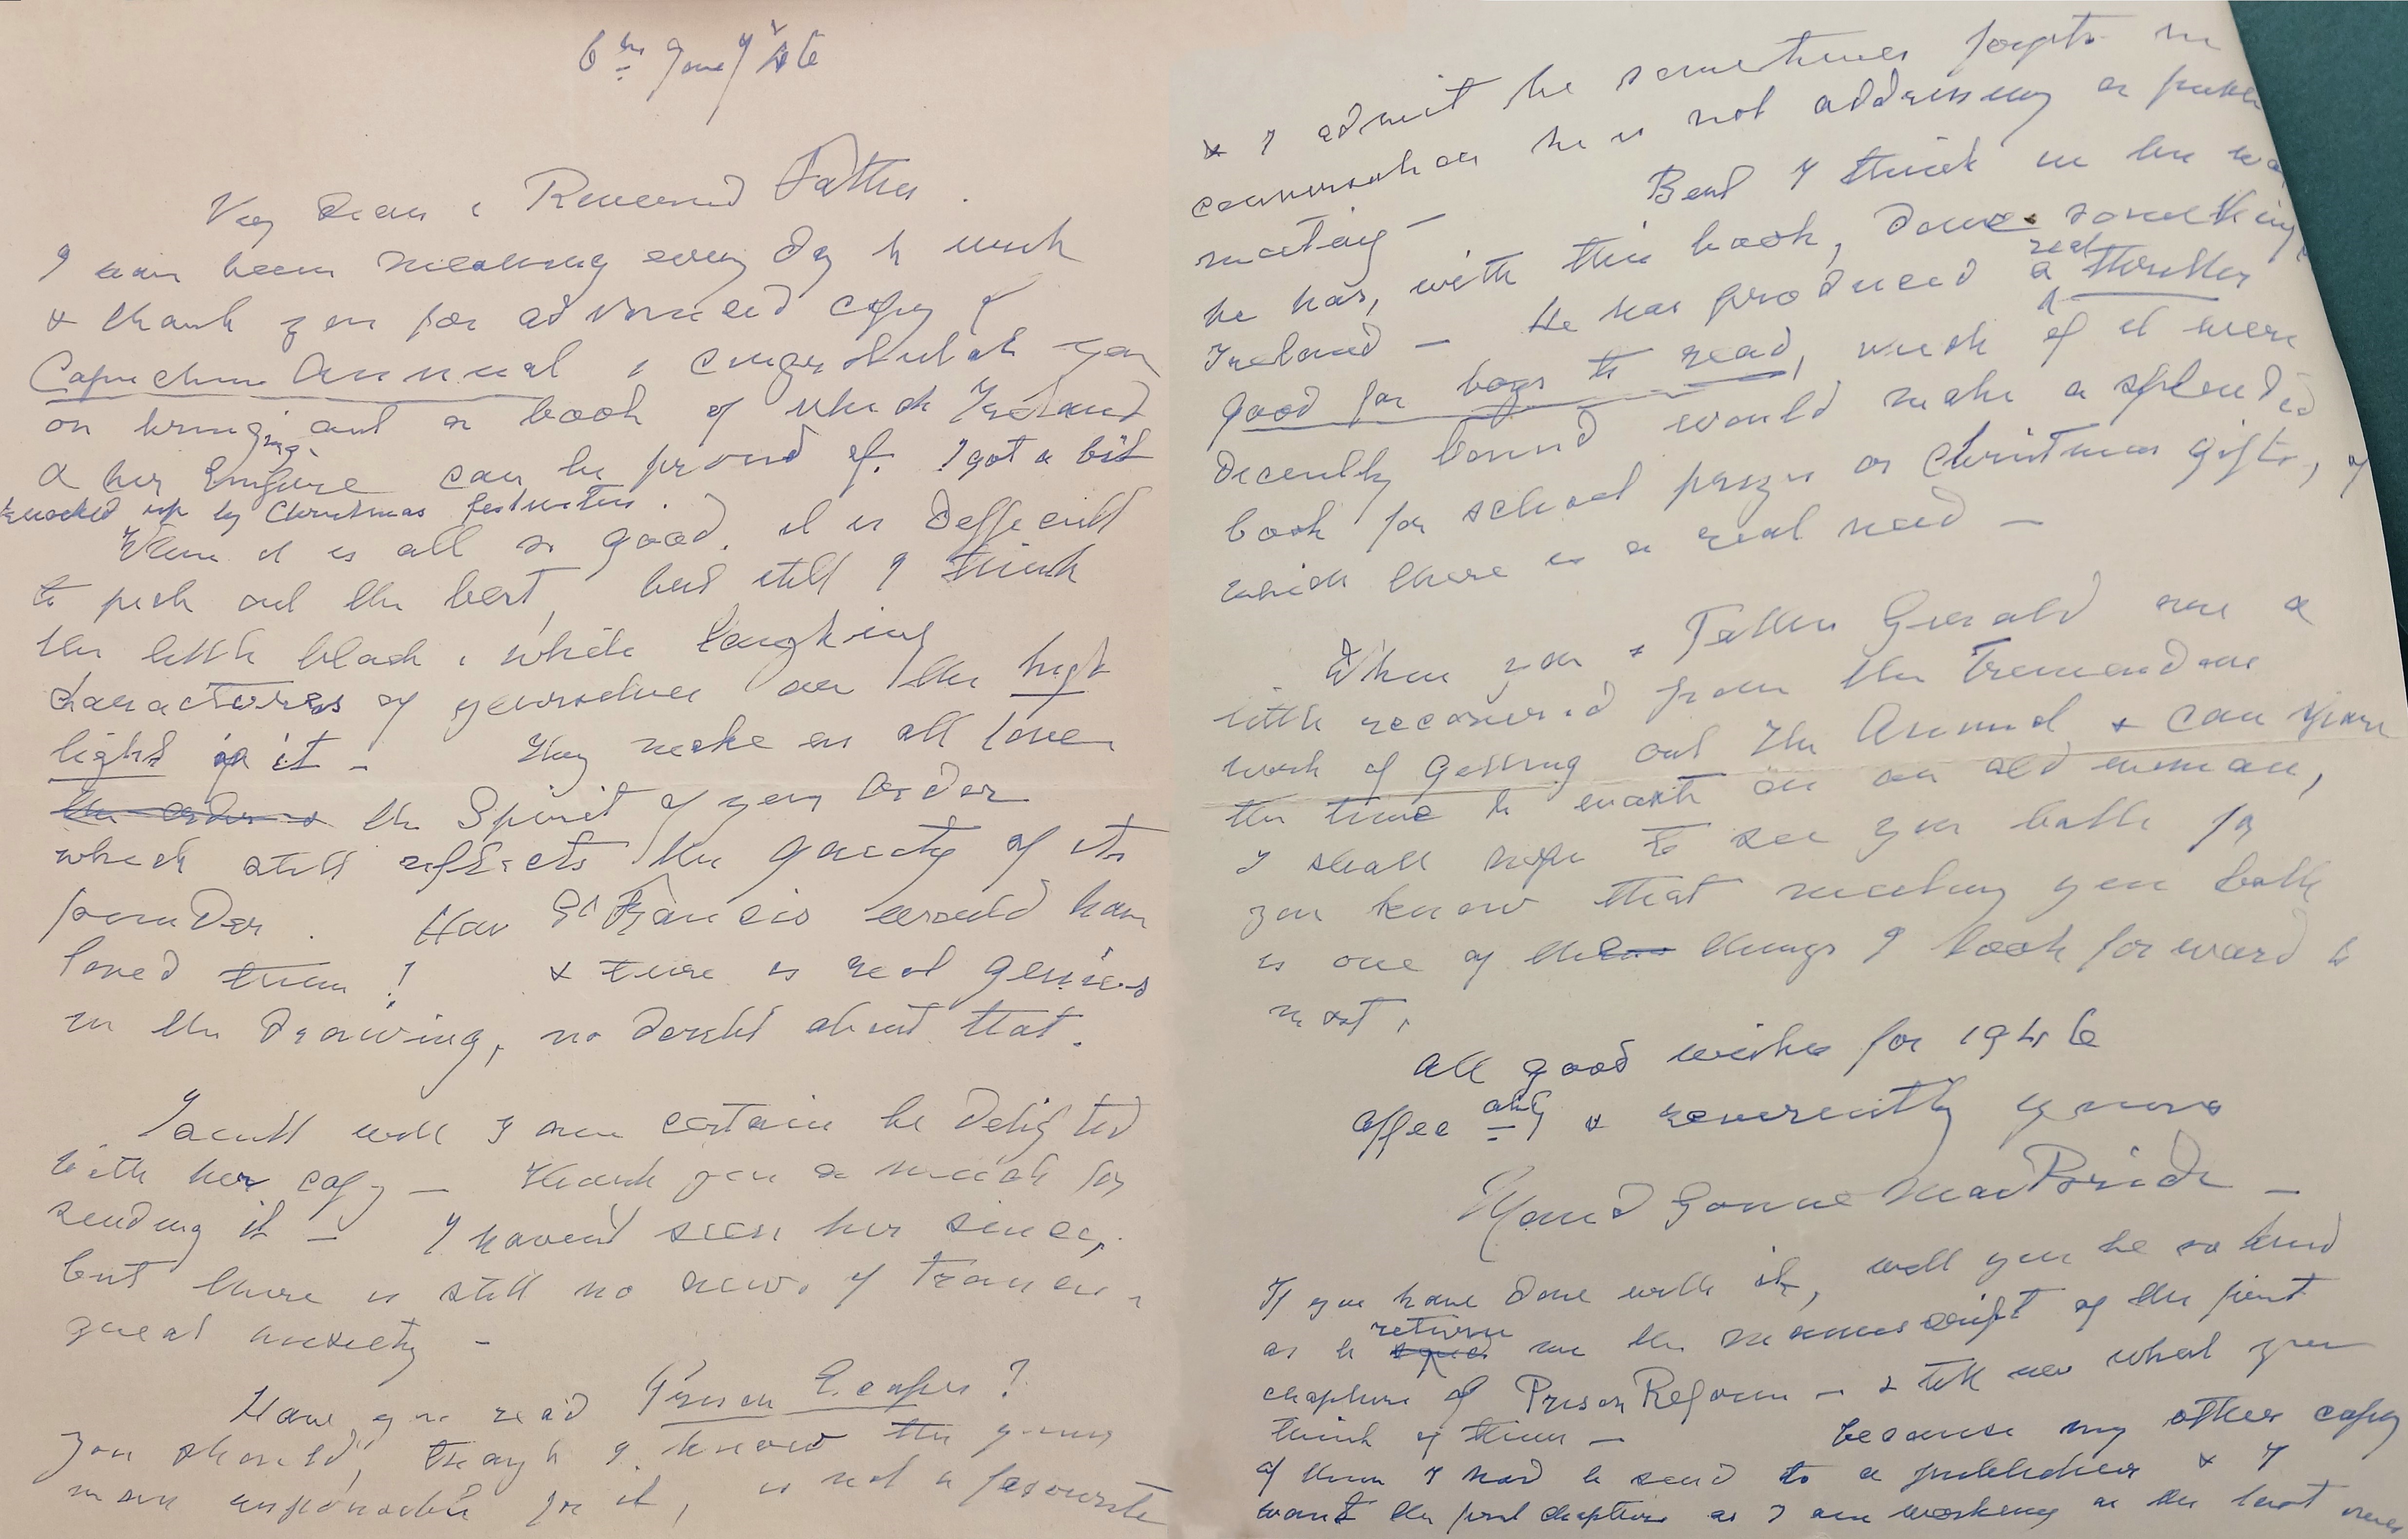 6th Jany 46
Very dear & Reverend Father.
I have been meaning every day to write
& thank you for advanced copy of
Capuchin Annual & congratulate you
on bringing out a book of which Ireland
& her Empire can be proud of. I got a bit
knocked up by Christmas festivities.
When it is all so good, it is difficult
to pick out the best, but still I think
the little black & white laughing
characatures of yourselves are the high
light of it - They make us all love
the order & the Spirit of your Order
which still reflects the gaiety of its
founder. How St Francis would have
loved them! & there is real genius
in the drawing, no doubt about that.
Iseult will I am certain be delighted
with her copy — thank you so much for
sending it — I havent seen her since,
but there is still no news of Francis,
great anxiety -
Have you read Prison Escapes?
You should, though I know the young
man responsible for it, is not a favourite
& I admit he sometimes forgets in
conversation he is not addressing a public
meeting — But I think in his way
he has, with this book, done something
Ireland — He has produced a real thriller
good for boys to read, which if it were
decently bound would make a splendid
book for school prizes or Christmas gifts, of
which there is a real need —
When you & Father Gerald are a
little recovered from the tremendous
work of getting out the Annual & can spare
the time to waste on an old woman,
I shall hope to see you both for
you know that meeting you both
is one of the things I look forward to
most.
All good wishes for 1946
Affec ately & reverently yours
Maud Gonne MacBride —
If you have done with it, will you be so kind
as to return me the manuscript of the first
chapters of Prison Reform — & tell me what you
think of them — because my other copy
of them I had to send to a publisher & I
want the first chapters as I am working on the last ones